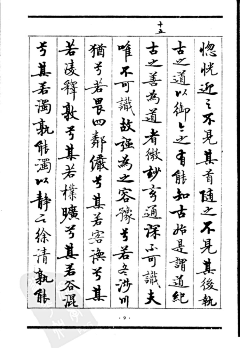 十五
惚恍迎之不見其首隨之不見其後執
古之道以御今之有能知古始是謂道紀
古之善為道者微妙玄通深不可識夫
唯不可識故強為之容豫兮若冬涉川
猶兮若畏四鄰儼兮其若客渙兮其
若凌釋敦兮其若樸曠兮其若谷混
兮其若濁孰能濁以靜之徐清孰能
·9·